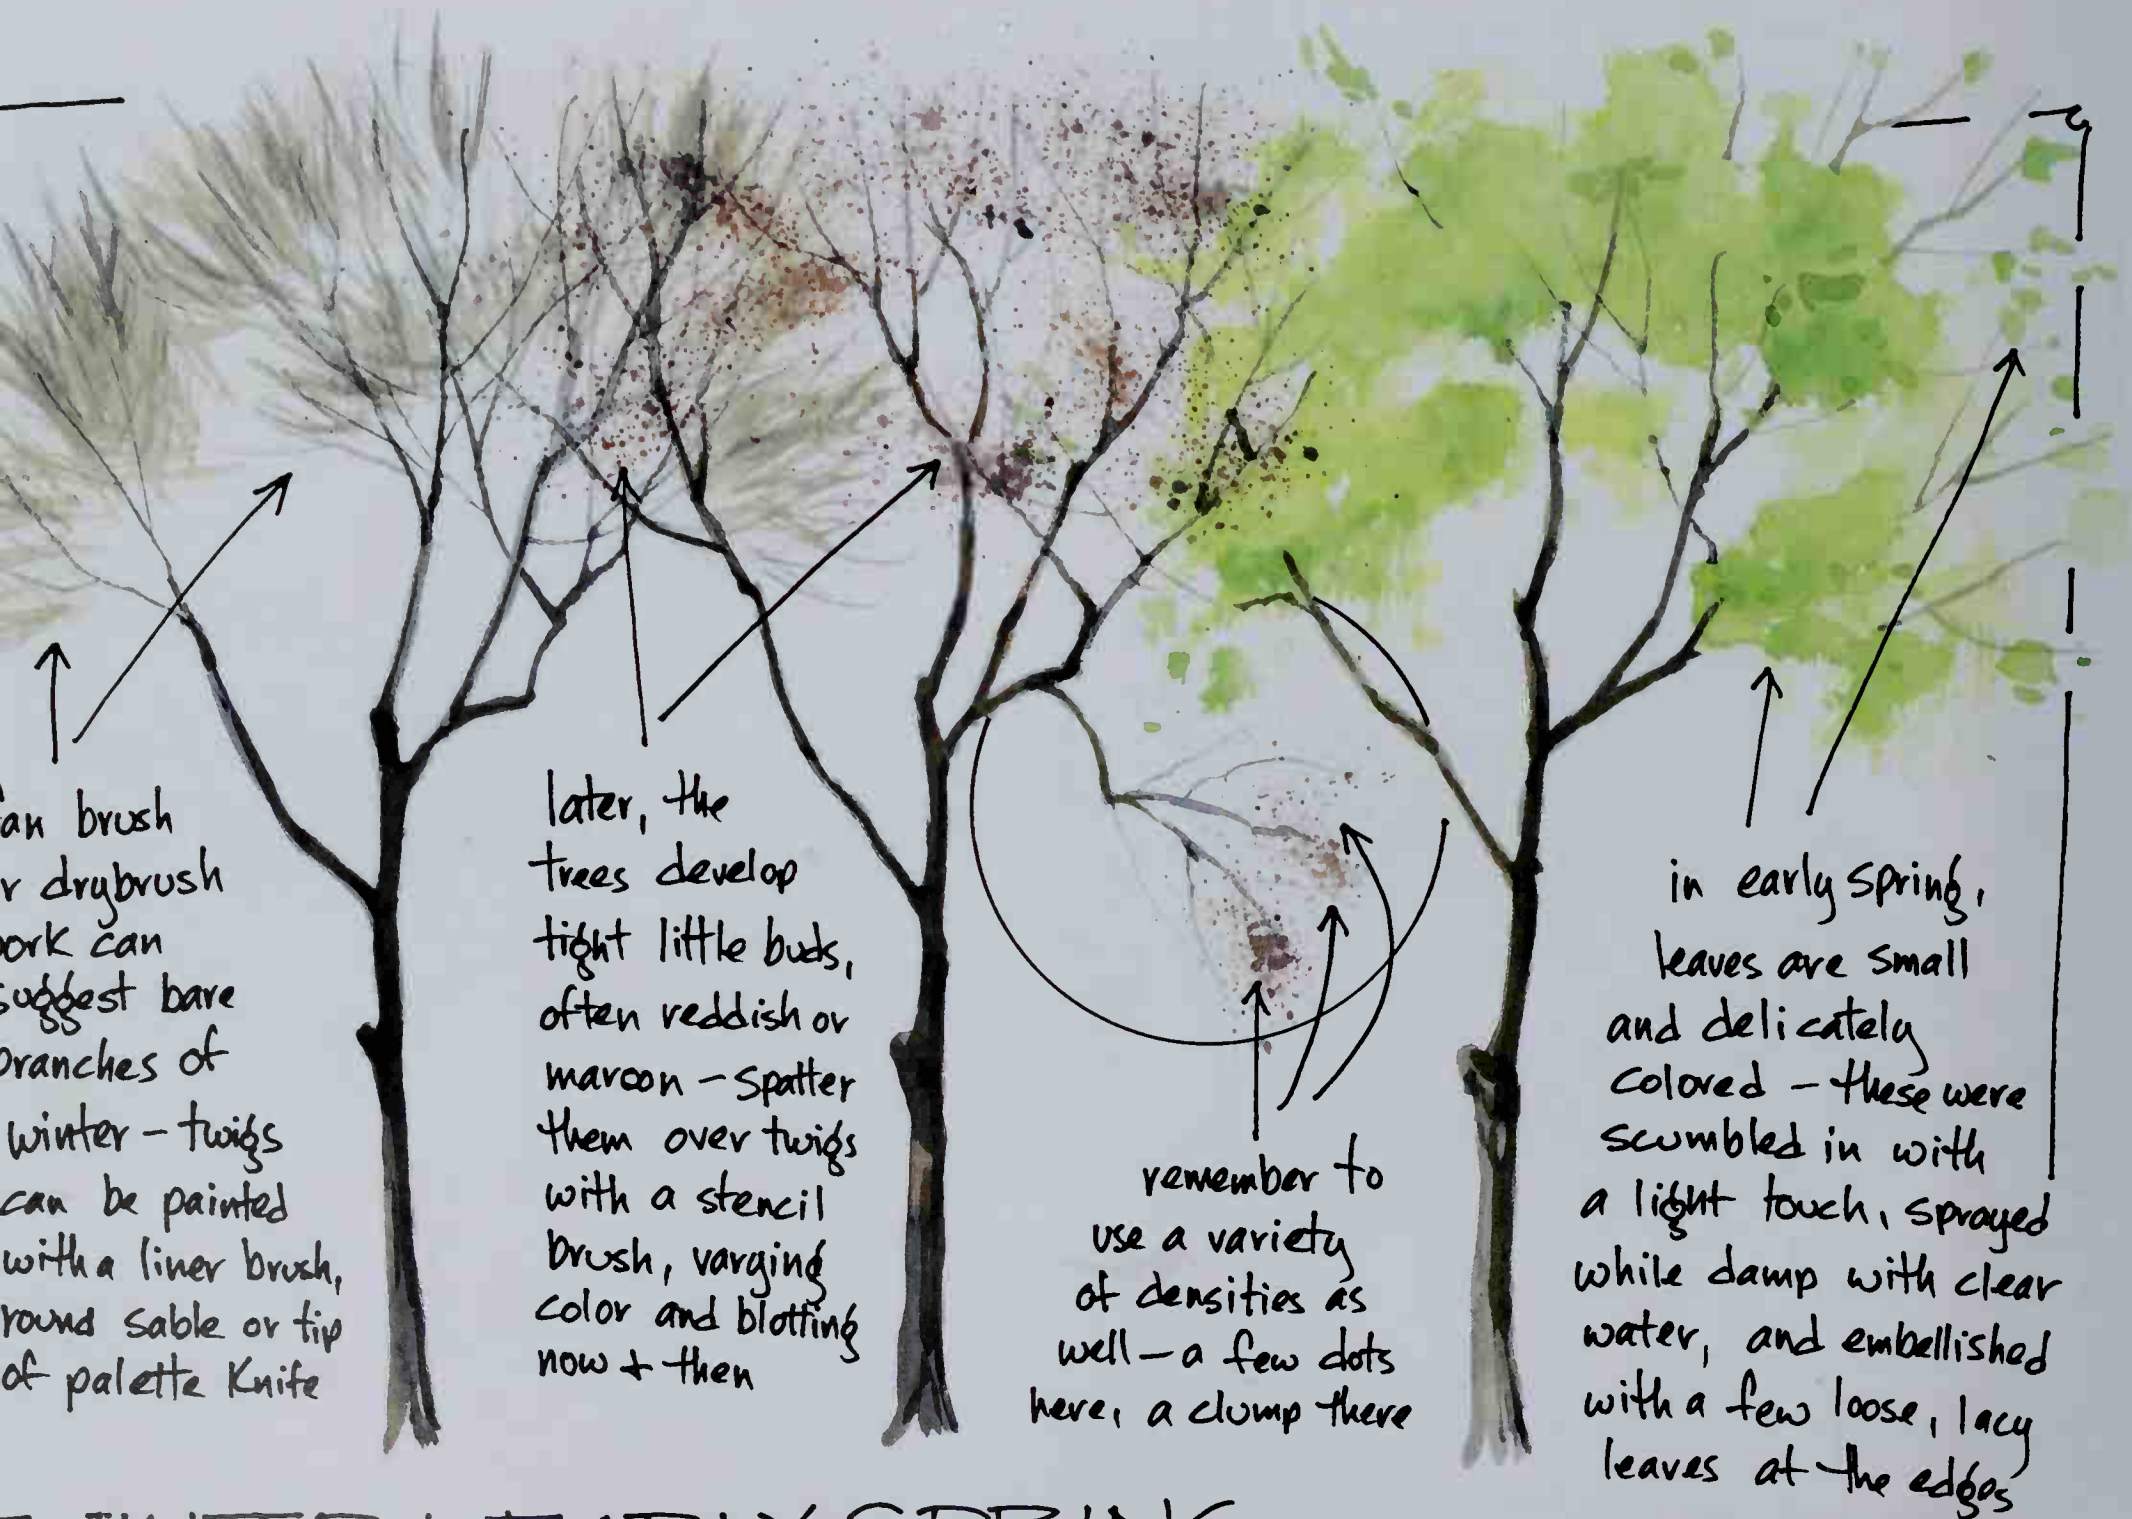 an brush
r drybrush
ork can
suggest bare
branches of
winter – twigs
can be painted
with a liner brush,
round sable or tip
of palette Knife
later, the
trees develop
tight little buds,
often reddish or
maroon – spatter
them over twigs
with a stencil
brush, varying
color and blotting
now + then
remember to
use a variety
of densities as
well – a few dots
here, a clump there
in early spring,
leaves are small
and delicately
colored – these were
scumbled in with
a light touch, sprayed
while damp with clear
water, and embellished
with a few loose, lacy
leaves at the edges
SPRING